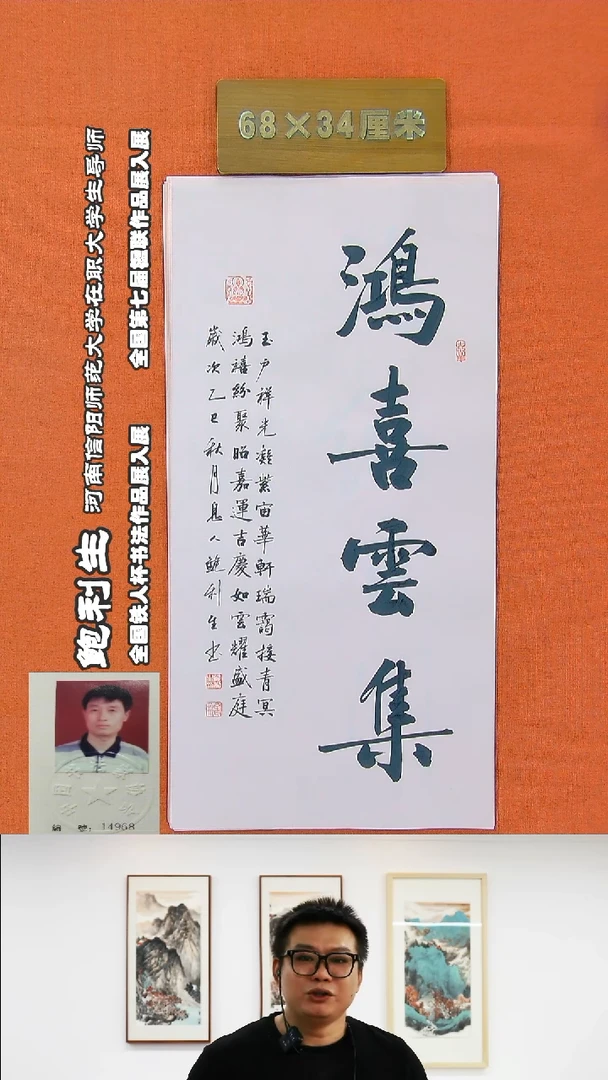 68×34厘米
鸿喜雲集
玉户祥光凝紫宙華軒瑞靄接青冥
鴻禧紛聚昭嘉運吉慶如雲耀盛庭
歲次乙巳秋月息人鲍利生书
鲍利生 河南信阳师范大学在职大学生导师
全国铁人杯书法作品展入展 全国第七届楹联作品展入展
編 號：14968